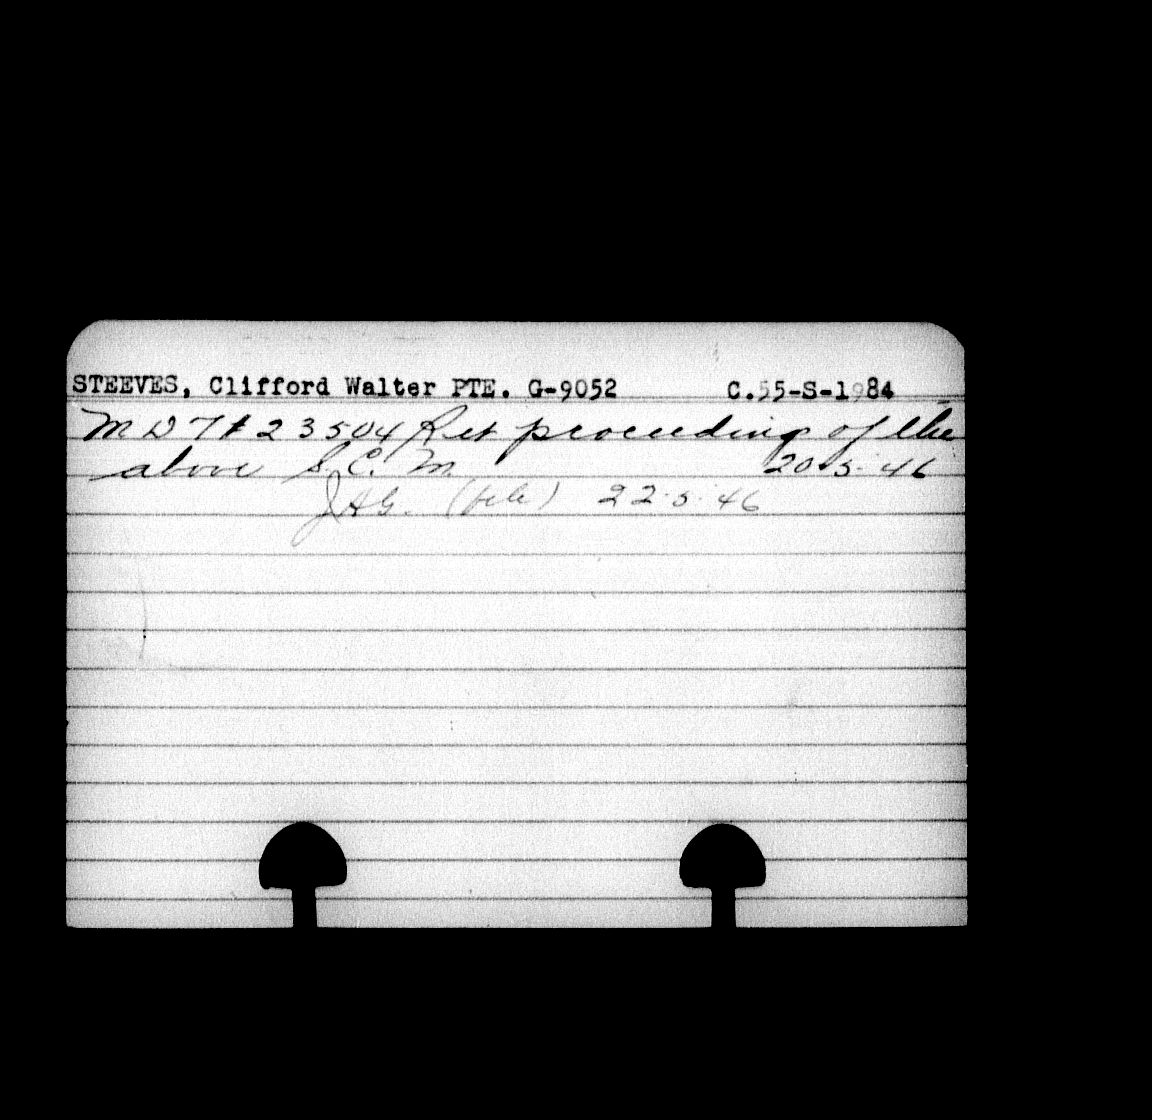 STEEVES, Clifford Walter PTE. G-9052 C.55-S-1984
M D 7 # 23504 Ret proceeding of the
above S. C. M. 20.5.46
JAG. (file) 22.5.46